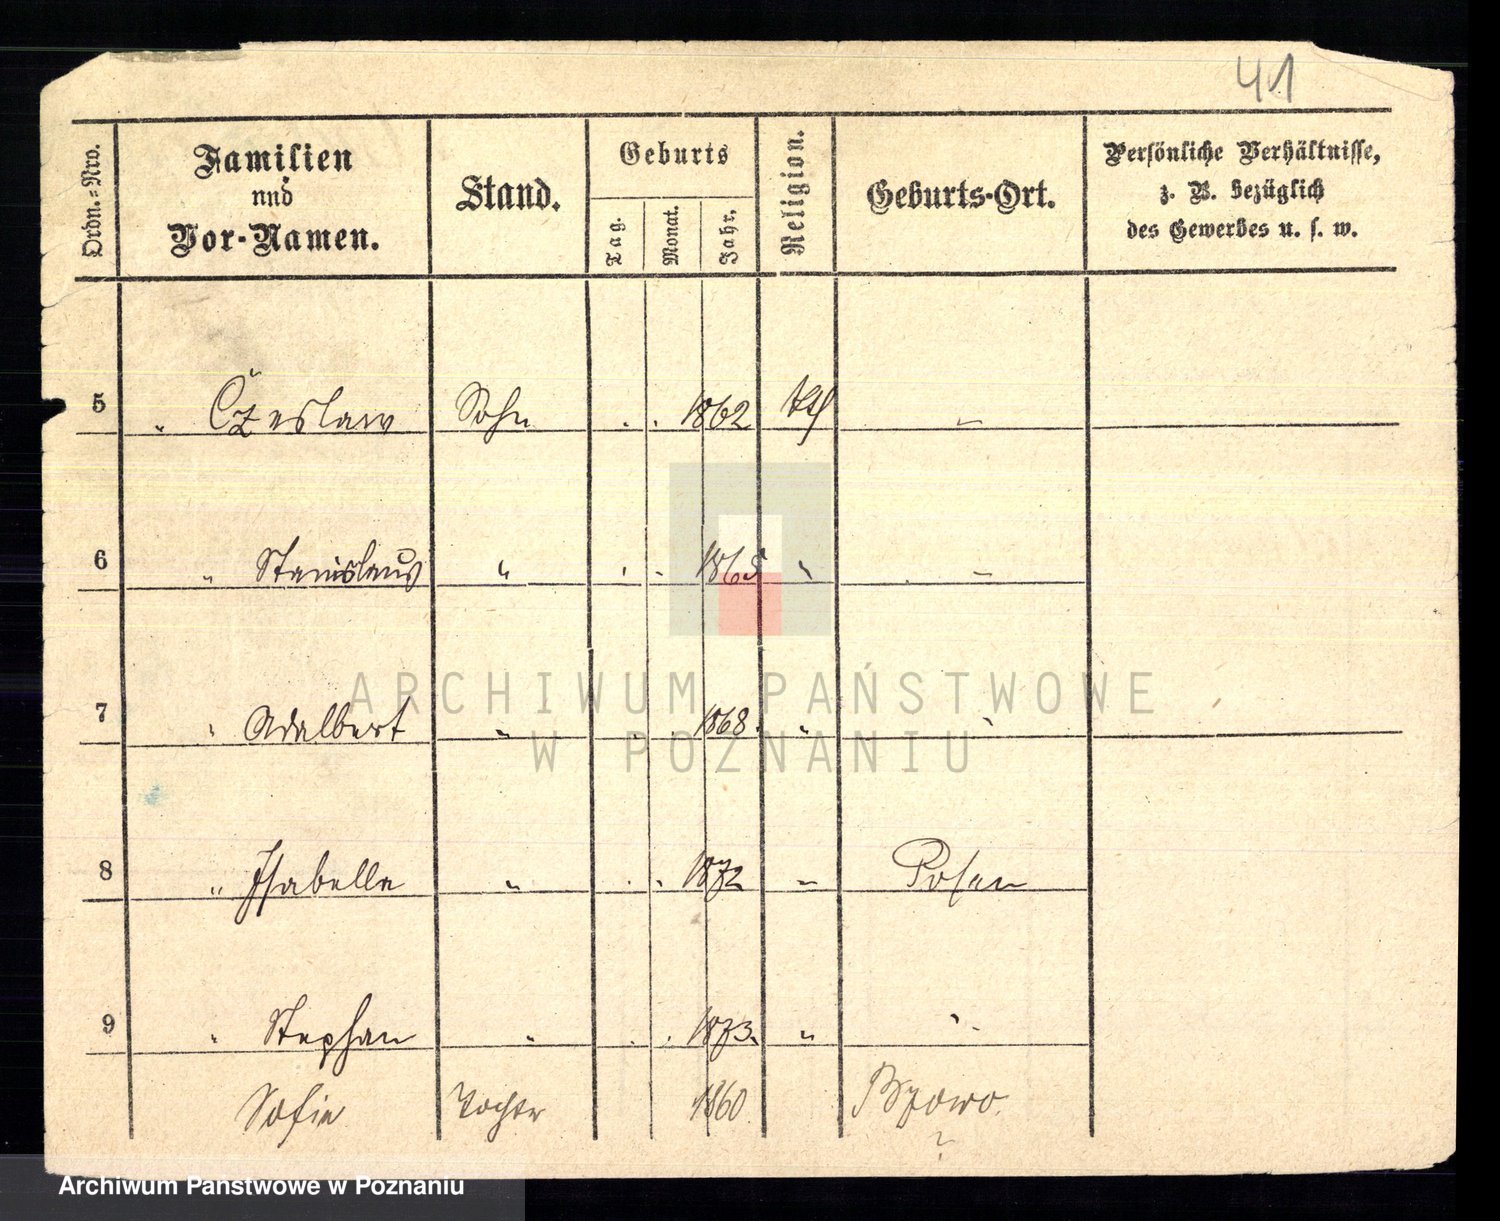 41
Ordn.=Nro.
Familien
und
Vor-Namen.
Stand.
Geburts
Tag.
Monat.
Jahr.
Religion.
Geburts-Ort.
Persönliche Verhältnisse,
z. B. bezüglich
des Gewerbes u. s. w.
5 " Czeslaw Sohn . . 1862 kth "
6 " Stanislaus " . . 1865 " "
7 " Adalbert " . 1868. " "
8 " Isabella " . . 1872 " Posen
9 " Stephan " . . 1873. " "
Sofie Tochter 1860
ARCHIWUM PAŃSTWOWE
W POZNANIU
Archiwum Państwowe w Poznaniu